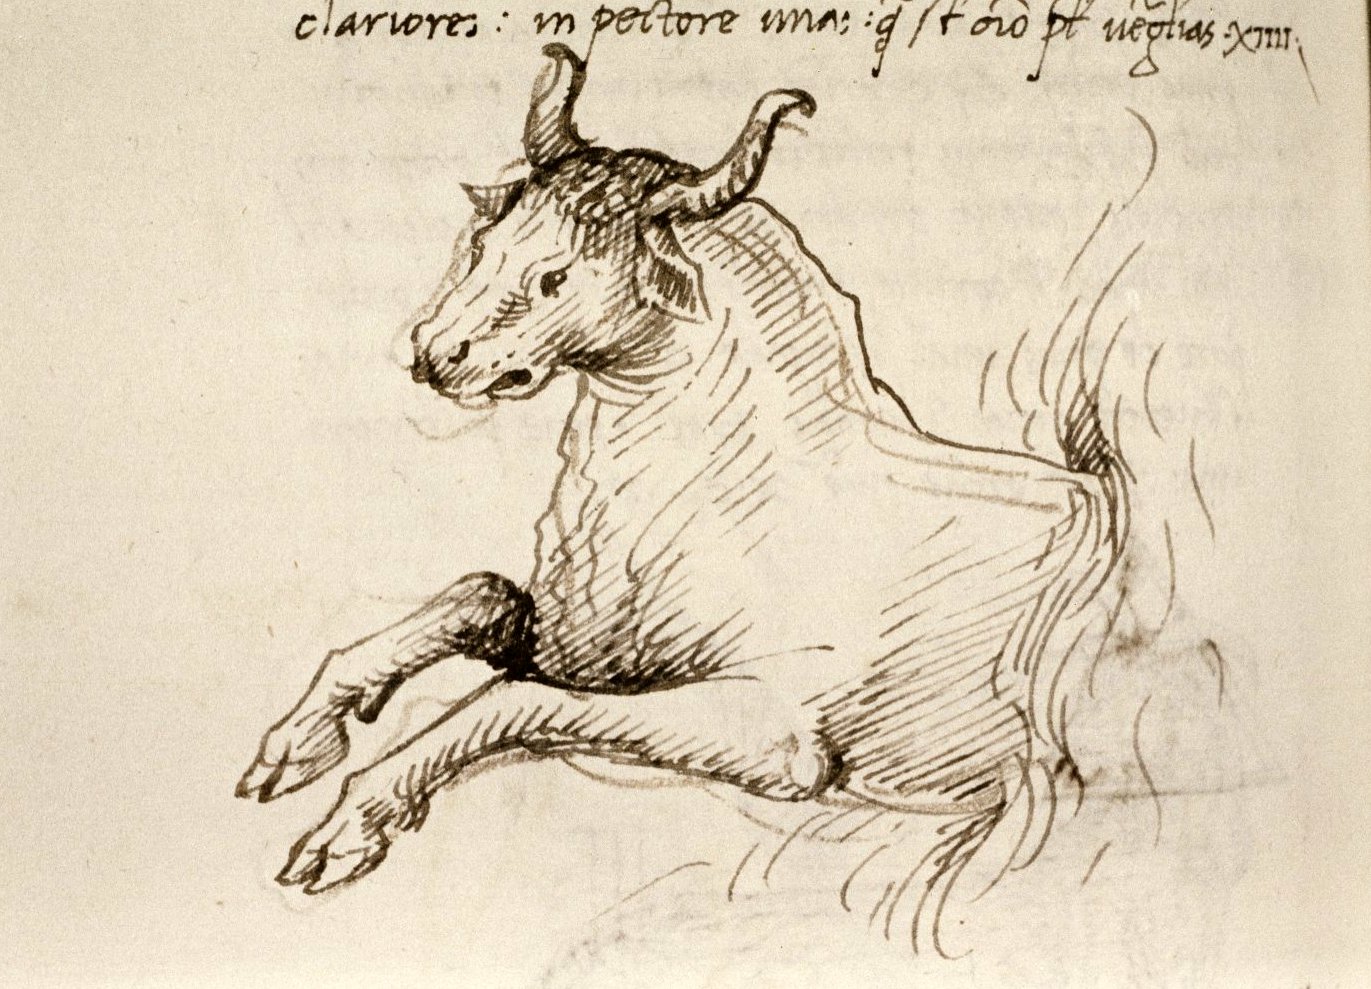 clariores : in pectore una: :q̃ st oĩo pt̃ ueg̃lias .XIIII.